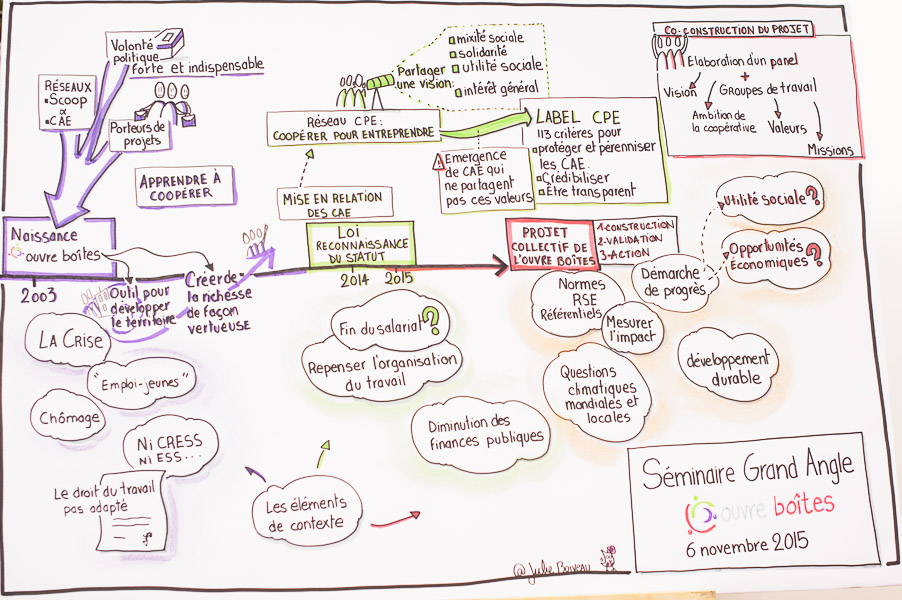 Volonté
politique
forte et indispensable
RÉSEAUX
Scoop
&
CAE
Porteurs de
projets
APPRENDRE À
COOPÉRER
Naissance
ouvre boîtes
2003
Outil pour
développer
le territoire
Créer de
la richesse
de façon
vertueuse
LA CRISE
"Emploi-jeunes"
Chômage
Ni CRESS
Ni ESS...
Le droit du travail
pas adapté
Partager
une vision:
mixité sociale
solidarité
utilité sociale
intérêt général
Réseau CPE:
COOPÉRER POUR ENTREPRENDRE
MISE EN RELATION
DES CAE
LABEL CPE
113 critères pour
protéger et pérenniser
les CAE.
Crédibiliser
Être transparent
Emergence
de CAE qui
ne partagent
pas ces valeurs
LOI
RECONNAISSANCE
DU STATUT
2014
2015
Fin du salariat ?
Repenser l'organisation
du travail
Diminution des
finances publiques
Les éléments
de contexte
CO-CONSTRUCTION DU PROJET
Elaboration d'un panel
+
Vision
Groupes de travail
Ambition de
la coopérative
Valeurs
Missions
PROJET
COLLECTIF DE
L'OUVRE BOÎTES
1-CONSTRUCTION
2-VALIDATION
3-ACTION
Démarche
de progrès
Utilité sociale ?
Opportunités
Économiques ?
Normes
RSE
Référentiels
Mesurer
l'impact
Questions
climatiques
mondiales et
locales
développement
durable
Séminaire Grand Angle
ouvre boîtes
6 novembre 2015
@Julie Boiveau